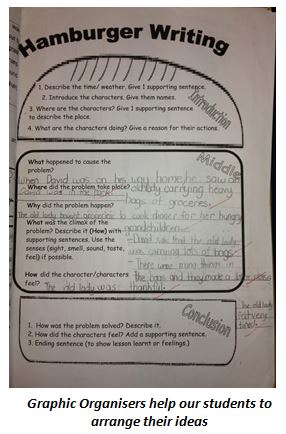 Hamburger Writing
1. Describe the time/ weather. Give 1 supporting sentence.
2. Introduce the characters. Give them names.
3. Where are the characters? Give 1 supporting sentence
to describe the place.
4. What are the characters doing? Give a reason for their actions.
Introduction
Middle
What happened to cause the
problem?
When David was on his way home, he saw an
Where did the problem take place? old lady carrying heavy
bags of groceries.
Why did the problem happen?
The old lady bought groceries to cook dinner for her hungry
grandchildren.
What was the climax of the
problem? Describe it (How) with
supporting sentences. Use the
senses (sight, smell, sound, taste,
feel) if possible.
- David saw that the old lady
was carrying lots of bags
- There were many things in
the bag and they made a
How did the character/characters
feel?
The old lady was thankful.
The old lady
Conclusion
1. How was the problem solved? Describe it.
2. How did the characters feel? Add a supporting sentence.
3. Ending sentence (to show lesson learnt or feelings.)
Graphic Organisers help our students to
arrange their ideas